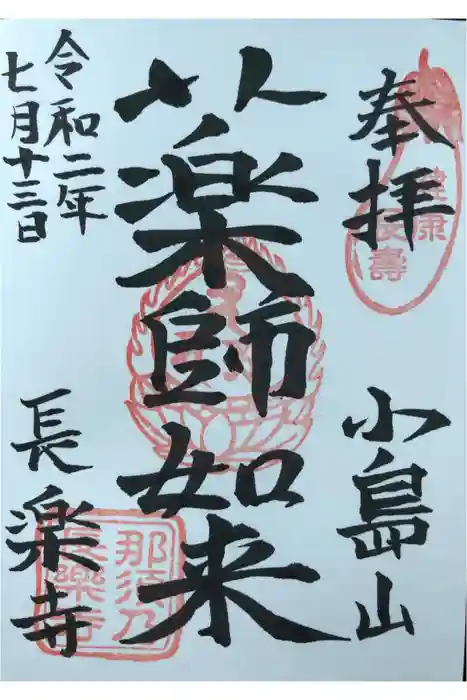 奉拝
健康
長壽
小島山
薬師如来
令和二年
七月十三日
長楽寺
那須乃
長樂寺